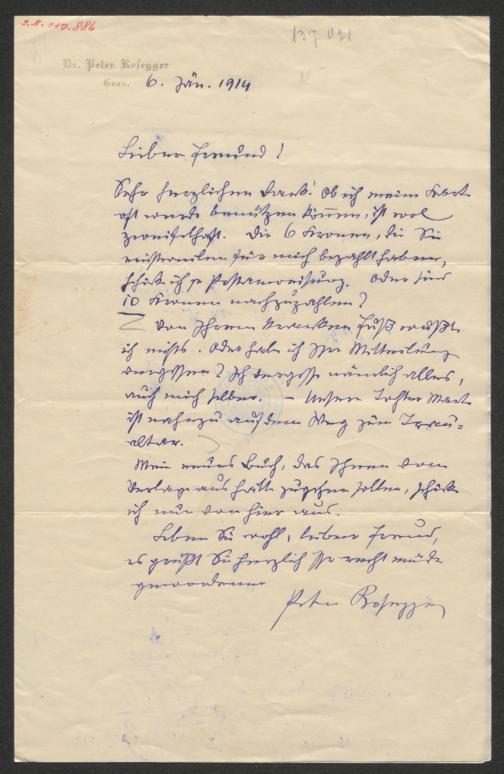 I.N. 117.886
137 021
Dr. Peter Rosegger
Graz.
6. Jän. 1914
Lieber Freund!
Sehr herzlichen Dank! Ob ich meine Karte
oft werde benützen können, ist wol
zweifelhaft. Die 6 Kronen, die Sie
einstweilen für mich bezahlt haben,
schicke ich pr Postanweisung. Oder sind
10 Kronen nachzuzahlen?
Von Ihrem kranken Fuß wußte
ich nichts. Oder habe ich Ihre Mitteilung
vergessen? Ich vergesse nämlich alles,
auch mich selber. – Unsere Tochter
ist nahezu auf dem Weg zum Trau-
altar.
Mein neues Buch, das Ihnen vom
Verlage aus hätte zugehen sollen, schicke
ich nun von hier aus.
Leben Sie wohl, lieber Freund,
es grüßt Sie herzlich Ihr recht müde
gewordener
Peter Rosegger